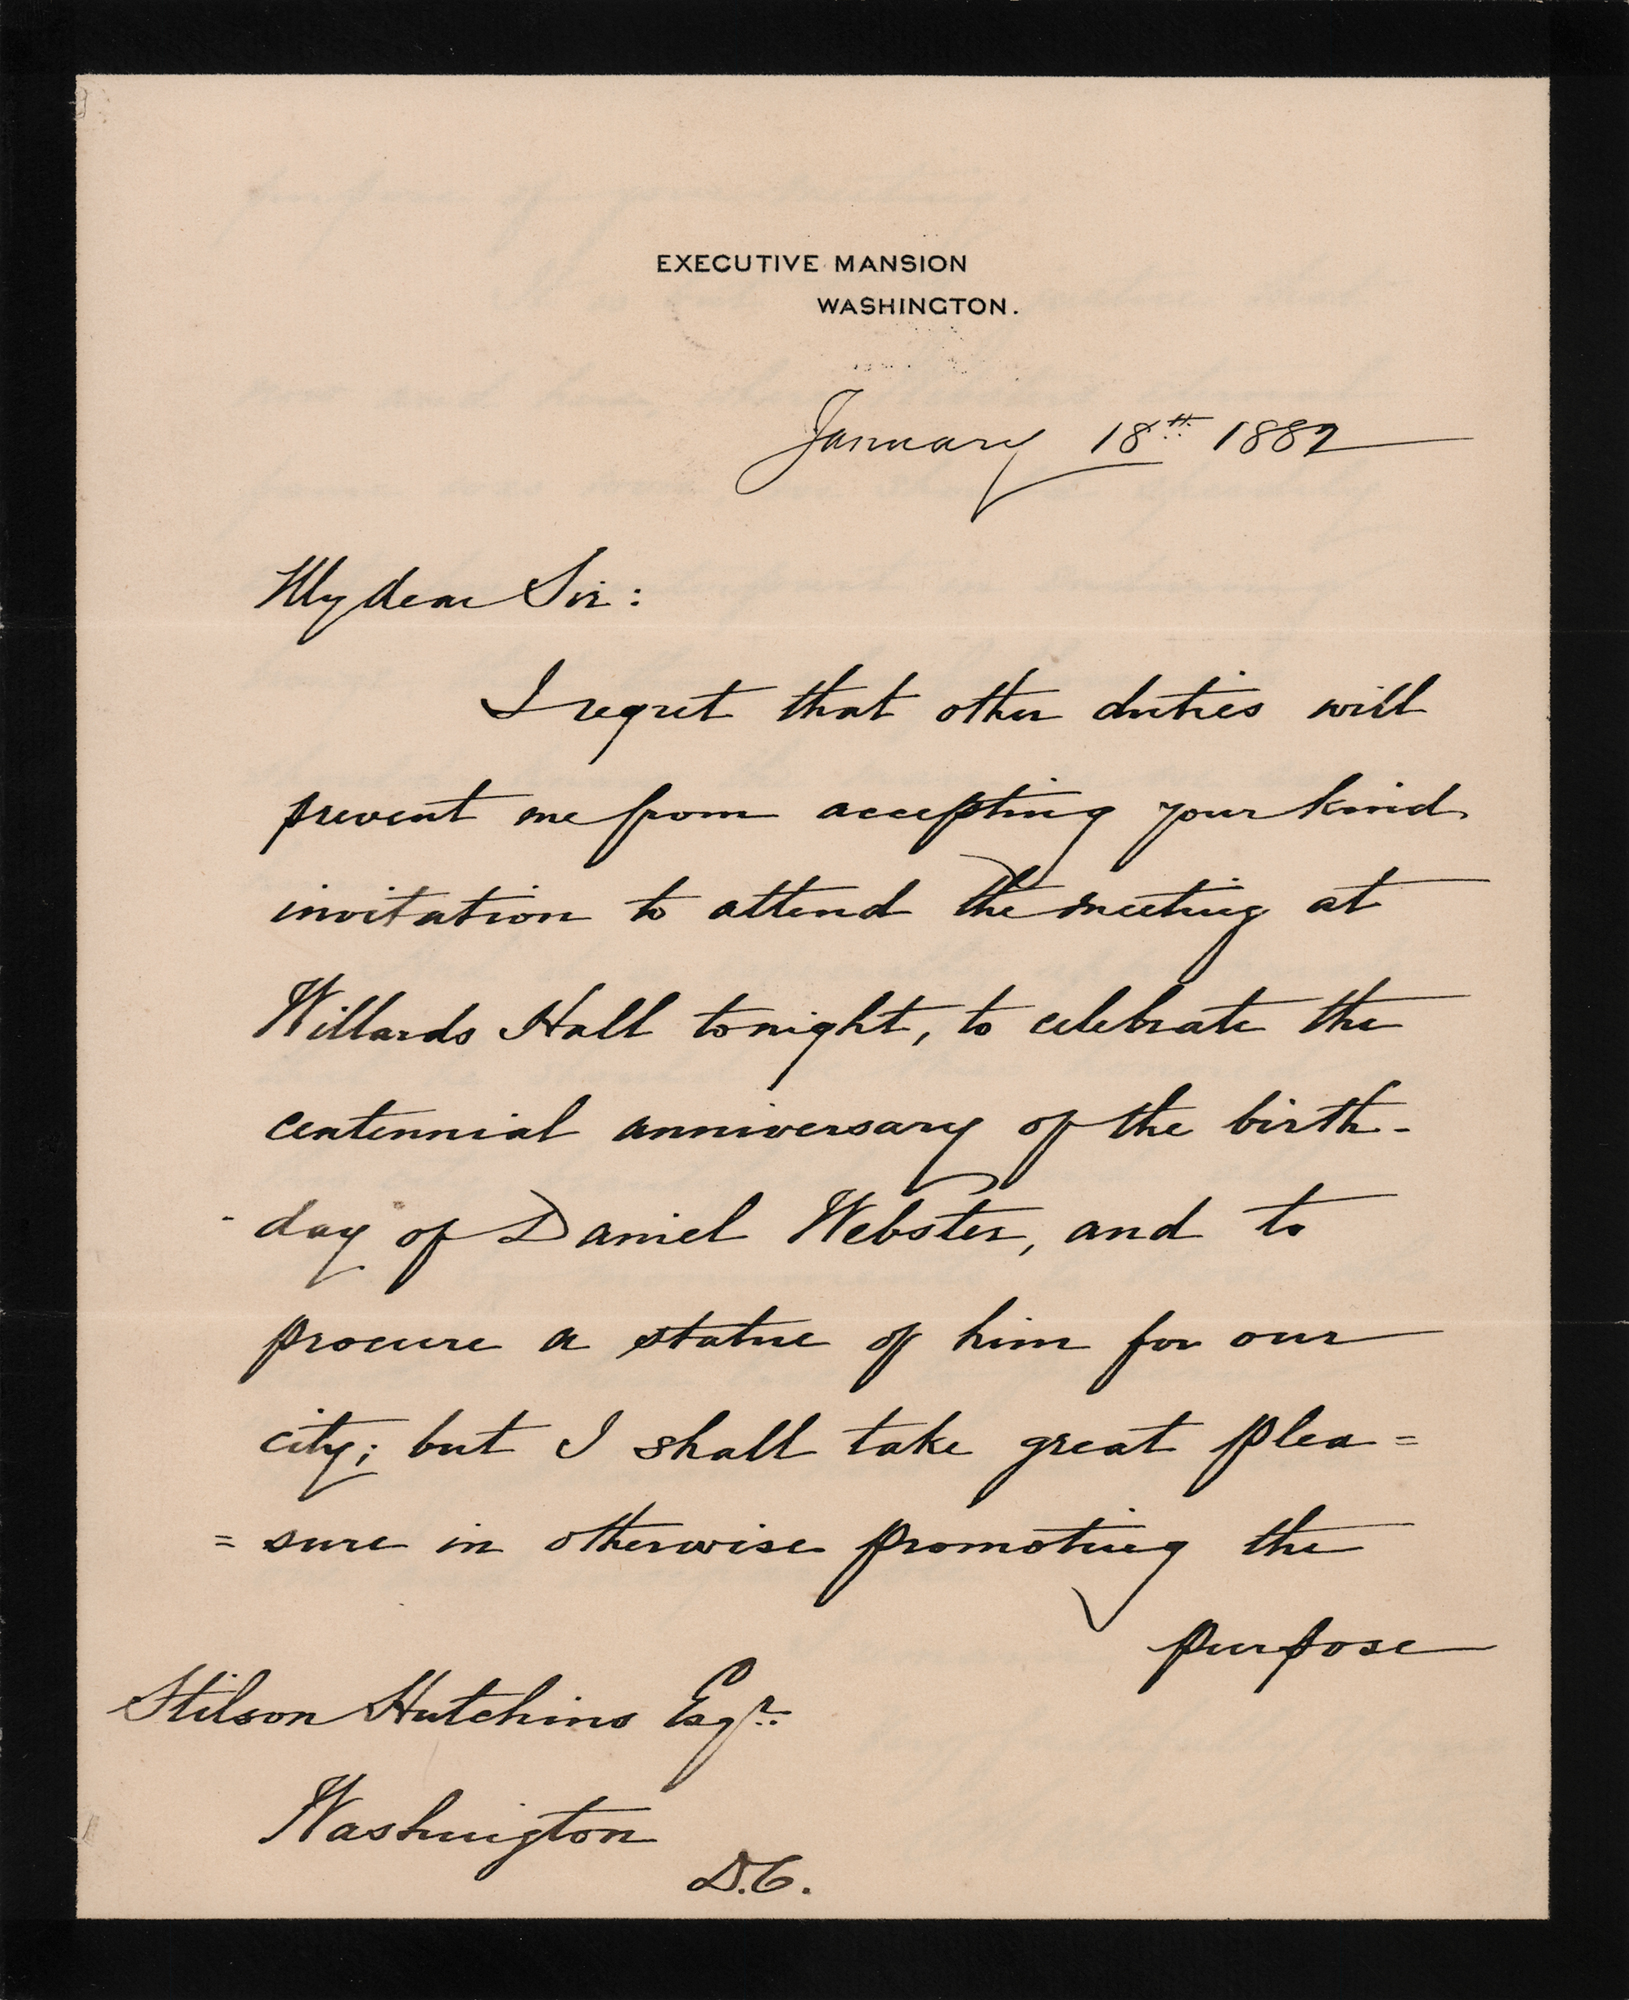 EXECUTIVE MANSION
WASHINGTON.
January 18th 1882
My dear Sir:
I regret that other duties will
prevent me from accepting your kind
invitation to attend the meeting at
Willards Hall tonight, to celebrate the
centennial anniversary of the birth-
-day of Daniel Webster, and to
procure a statue of him for our
city; but I shall take great plea=
=sure in otherwise promoting the
purpose
Stilson Hutchins Esqr.
Washington
D.C.